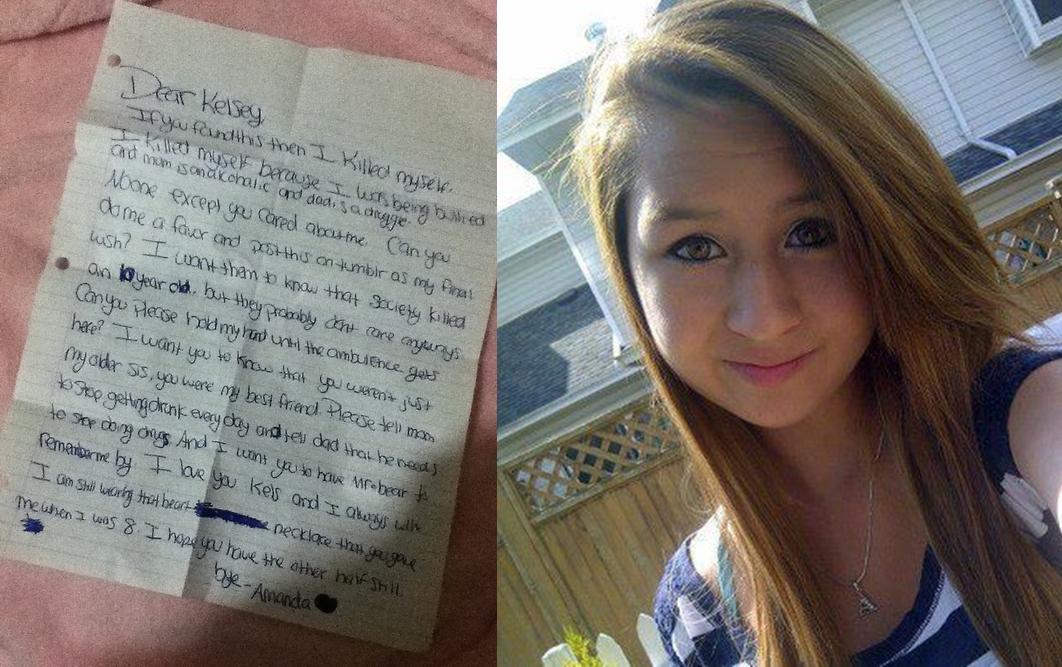 Dear Kelsey,
If you found this then I killed myself.
I killed myself because I was being bullied
and mom is an alcoholic and dad is a drugge.
Noone except you cared about me. Can you
do me a favor and post this on tumblr as my final
wish? I want them to know that society killed
an 10 year old. but they probably dont care anyways.
Can you Please hold my hand until the ambulence gets
here? I want you to know that you weren't just
my older sis, you were my best friend. Please tell mom
to stop getting drunk every day and tell dad that he needs
to stop doing drugs And I want you to have Mr. bear to
remember me by. I love you Kels and I always will.
I am still wearing that heart necklace that you gave
me when I was 8. I hope you have the other half still.
bye - Amanda